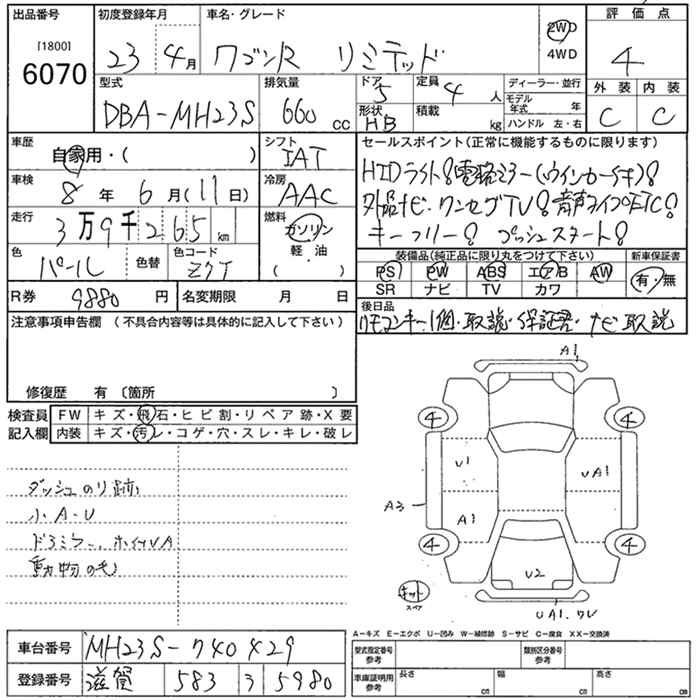 出品番号 初度登録年月 車名・グレード 評価点
[1800]
6070
23 4月 ワゴンR リミテッド 2WD 4WD 4
型式 排気量 ドア 5 定員 4人 ディーラー・並行 外装 内装
DBA-MH23S 660 cc 形状 HB 積載 kg モデル年式 年 ハンドル 左・右 C C
車歴 シフト セールスポイント(正常に機能するものに限ります)
自家用・( ) IAT
車検 8年 6月(11日) 冷房 AAC
HIDライト! 電格ミラー(ウインカー付キ)!
走行 3万9千265 km 燃料 ガソリン 軽油 ( )
外品ナビ・ワンセグTV! 音声タイプETC!
キーフリー! プッシュスタート!
色 パール 色替 色コード Z7T
装備品(純正品に限り丸をつけて下さい) 新車保証書
PS PW ABS エアB AW 有・無
SR ナビ TV カワ
R券 9880円 名変期限 月 日
後日品
リモコンキー1個・取説・保証書・ナビ取説
注意事項申告欄 (不具合内容等は具体的に記入して下さい)
修復歴 有 〔箇所 〕
検査員記入欄 FW キズ・飛石・ヒビ割・リペア跡・X要
内装 キズ・汚レ・コゲ・穴・スレ・キレ・破レ
ダッシュのり跡
小A・U
ドアミラー、ホイルA
動物の毛
A1
4 4
U1 UA1
A3 A1
4 4
U2
キット
スペア
UA1. W
A-キズ E-エクボ U-凹み W-補修跡 S-サビ C-腐食 XX-交換済
車台番号 MH23S-740429
登録番号 滋賀 583 う 5980
型式指定番号 参考 類別区分番号 参考
車庫証明用 参考 長さ cm 幅 cm 高さ cm